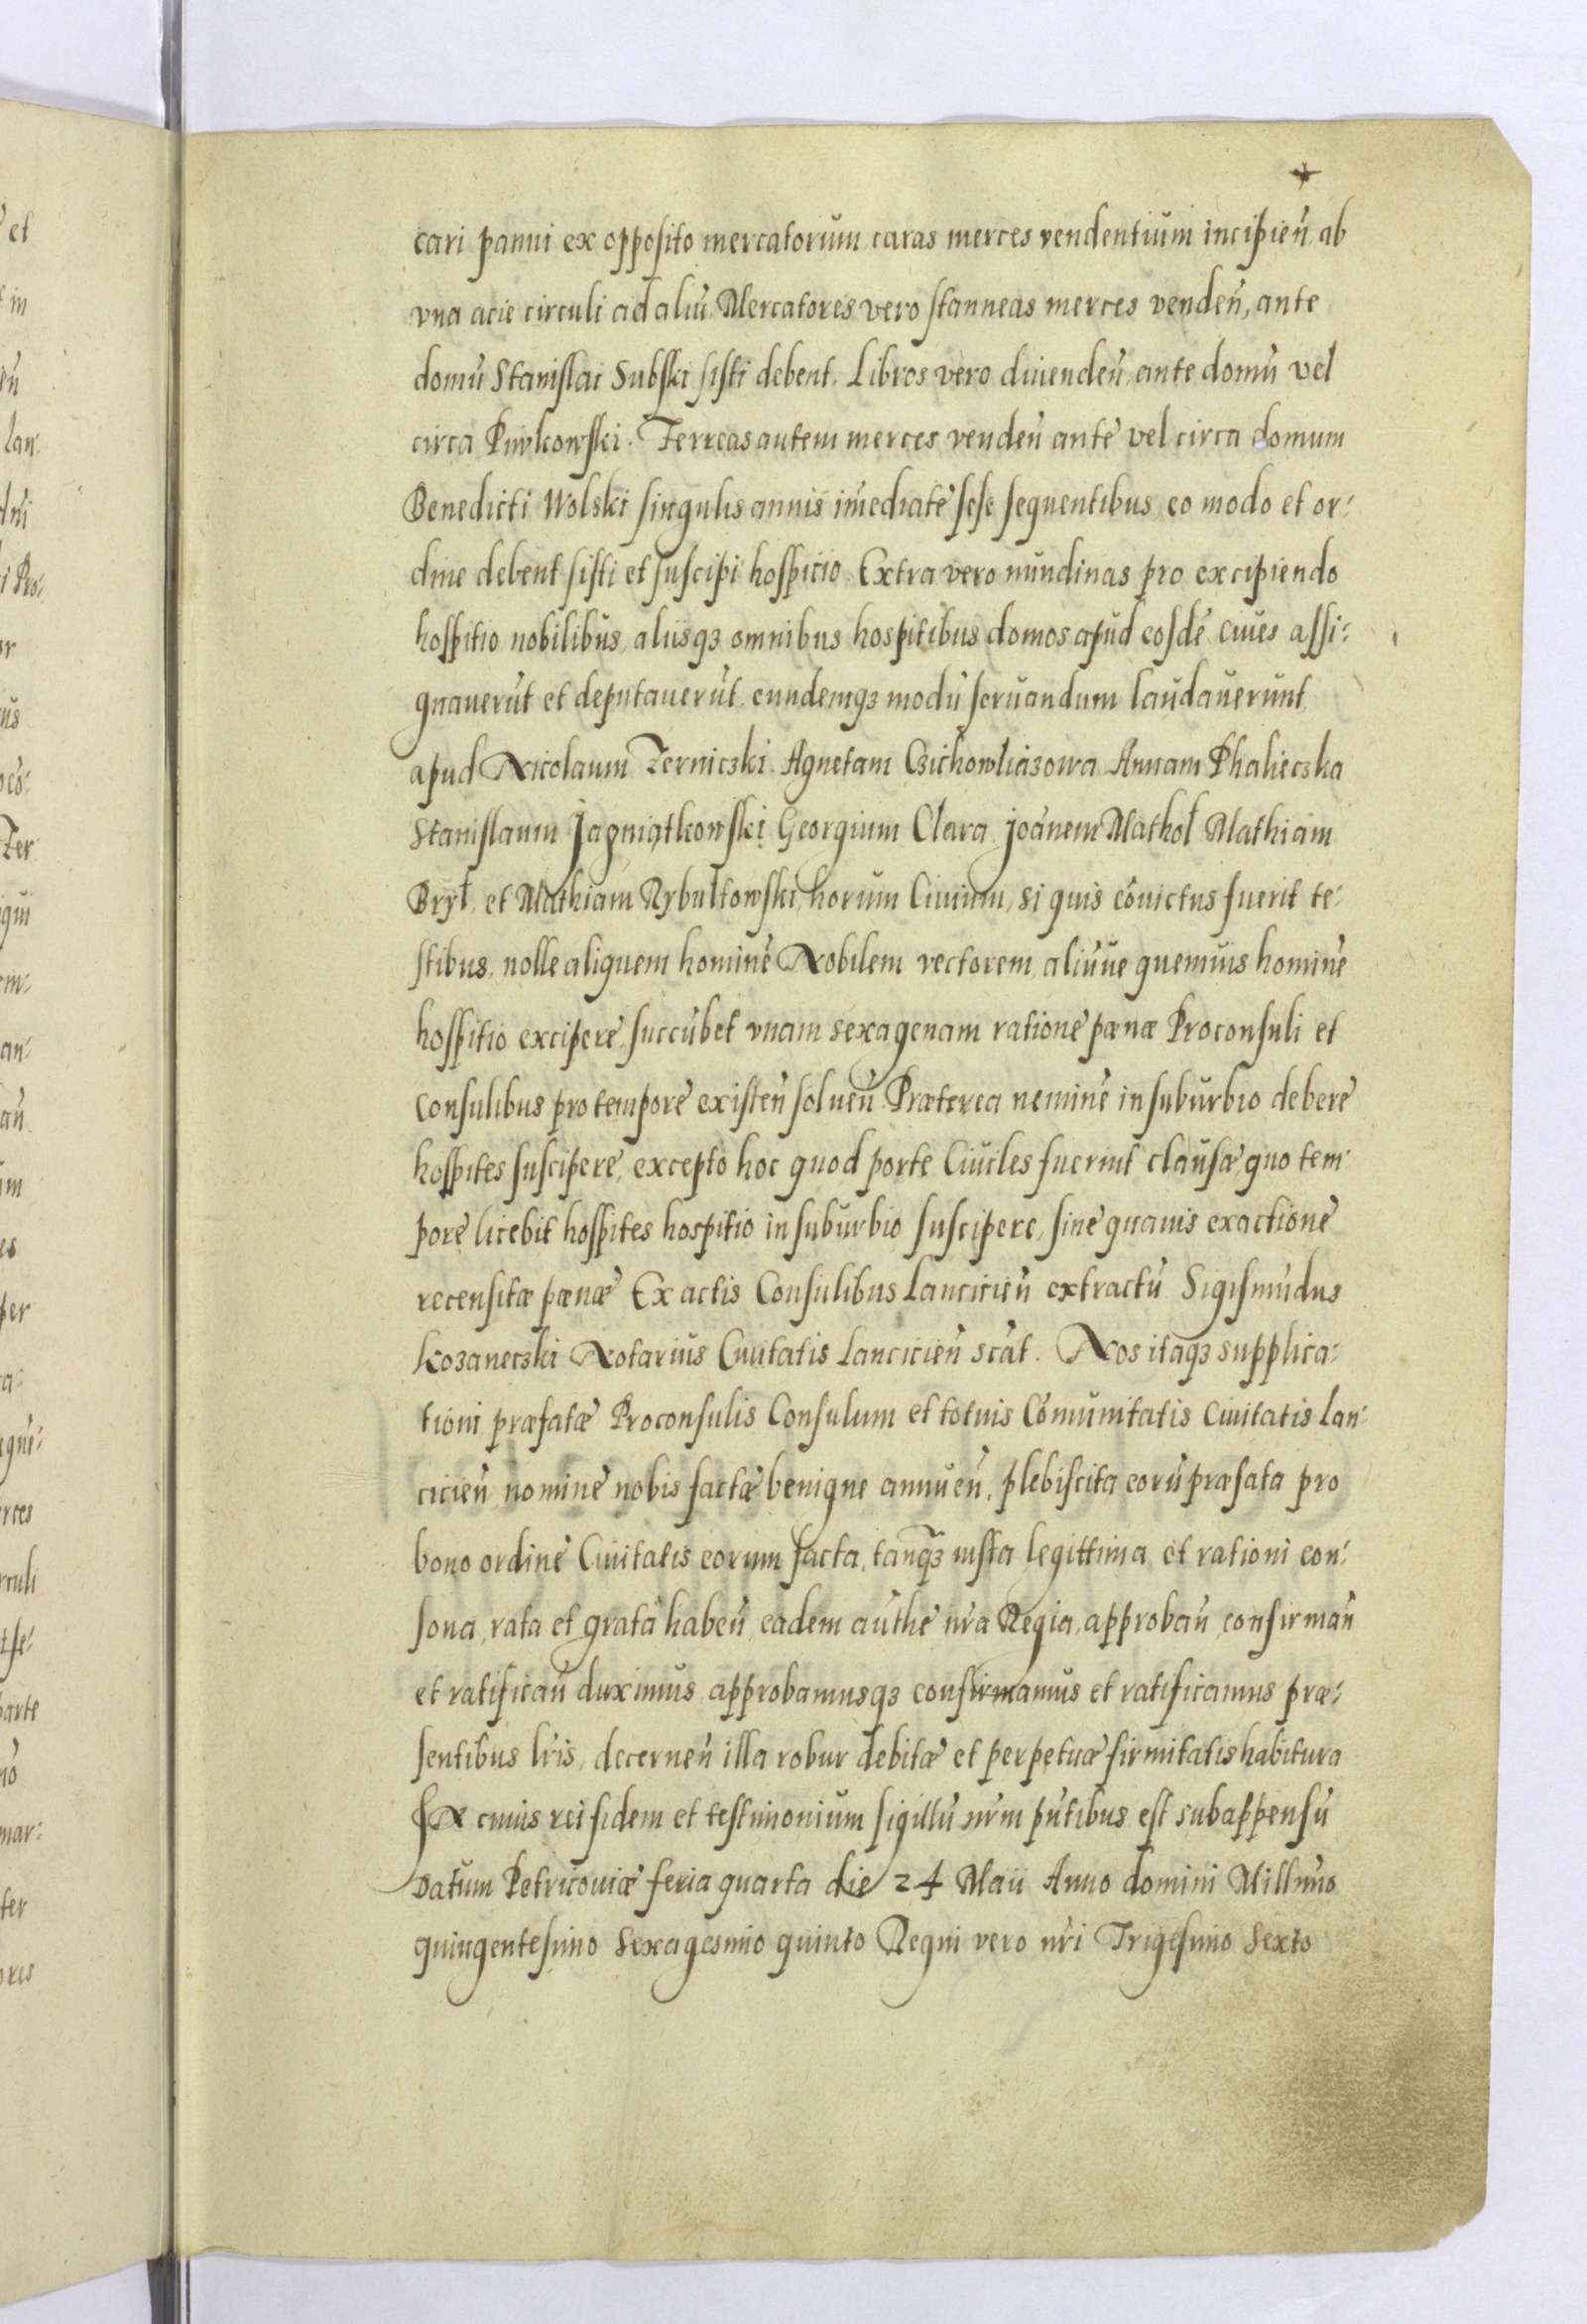 cari panni ex opposito mercatorum caras merces vendentium incipień ab
vna acie circuli ad aliū. Mercatores vero stanneas merces vendeń, ante
domū Stanislai Subski sisti debent. Libros vero diuendeń, ante domū vel
circa Piwkowski. Ferreas autem merces vendeń ante vel circa domum
Benedicti Wolski singulis annis im̄ediate sese sequentibus, eo modo et or-
dine debent sisti et suscipi hospicio. Extra vero nundinas pro excipiendo
hospitio nobilibus, aliisqꝫ omnibus hospitibus domos apud eosdē ciues assi-
gnauerūt et deputauerūt, eundemqꝫ modū seruandum laudauerunt,
apud Nicolaum Zerniczki. Agnetam Czichowliczowa Annam Phalieczka
Stanislaum Japniątkowski Georgium Clara, joānem Mathoł Mathiam
Brył, et Mathiam Rybułtowski, horum Ciuium, si quis cōuictus fuerit te-
stibus, nolle aliquem hominē Nobilem vectorem, aliūue quemuis hominē
hospitio excipere, succūbet vnam sexagenam rationē pœnæ Proconsuli et
Consulibus pro tempore existeń solueń. Præterea neminē in suburbio debere
hospites suscipere, excepto hoc quod porte Ciuiles fuerint clausæ quo tem-
pore licebit hospites hospitio in suburbio suscipere, sine quauis exactione
recensitæ pœnæ Ex actis Consulibus Lancicień extractū Sigismūdus
Kozaneczki Notarius Ciuitatis Lancicień sc̄āt. Nos itaqꝫ supplica-
tioni præfatæ Proconsulis Consulum et totius Cōmunitatis Ciuitatis Lan-
cicień nomine nobis factæ benigne annueń, plebiscita eorū præfata pro
bono ordine Ciuitatis eorum facta, tanq̃ꝫ iusta legittima, et rationi con-
sona, rata et grata habeń, eadem authe nr̄a Regia, approbań, confirmań
et ratificań duximus, approbamusqꝫ confirmamus et ratificamus præ-
sentibus lr̄is, decerneń illa robur debitæ et perpetuæ firmitatis habitura
In cuius rei fidem et testimonium sigillū nr̄m pn̄tibus est subappensū
Datum Petricouiæ feria quarta die 24 Maii Anno domini Millmo
quingentesimo Sexagesimo quinto Regni vero nr̄i Trigesimo Sexto